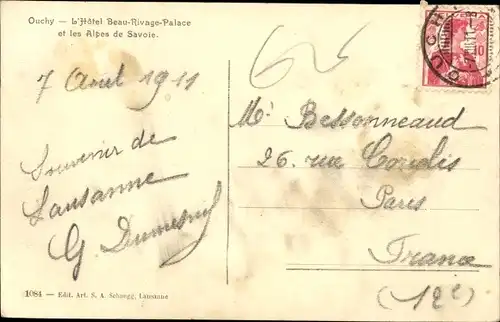 Ouchy — L'Hôtel Beau-Rivage-Palace
et les Alpes de Savoie.
7 Avril 1911
Souvenir de
Lausanne
G. Dumesnil
Mr Bessonneaud
26 rue Coudis
Paris
France
(12e)
OUCHY
10
1084 — Edit. Art. S. A. Schnegg, Lausanne